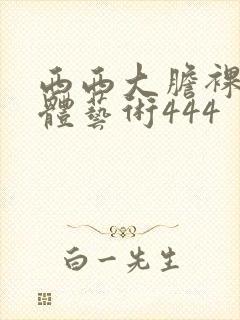 西西大膽裸
體藝術444
白一先生